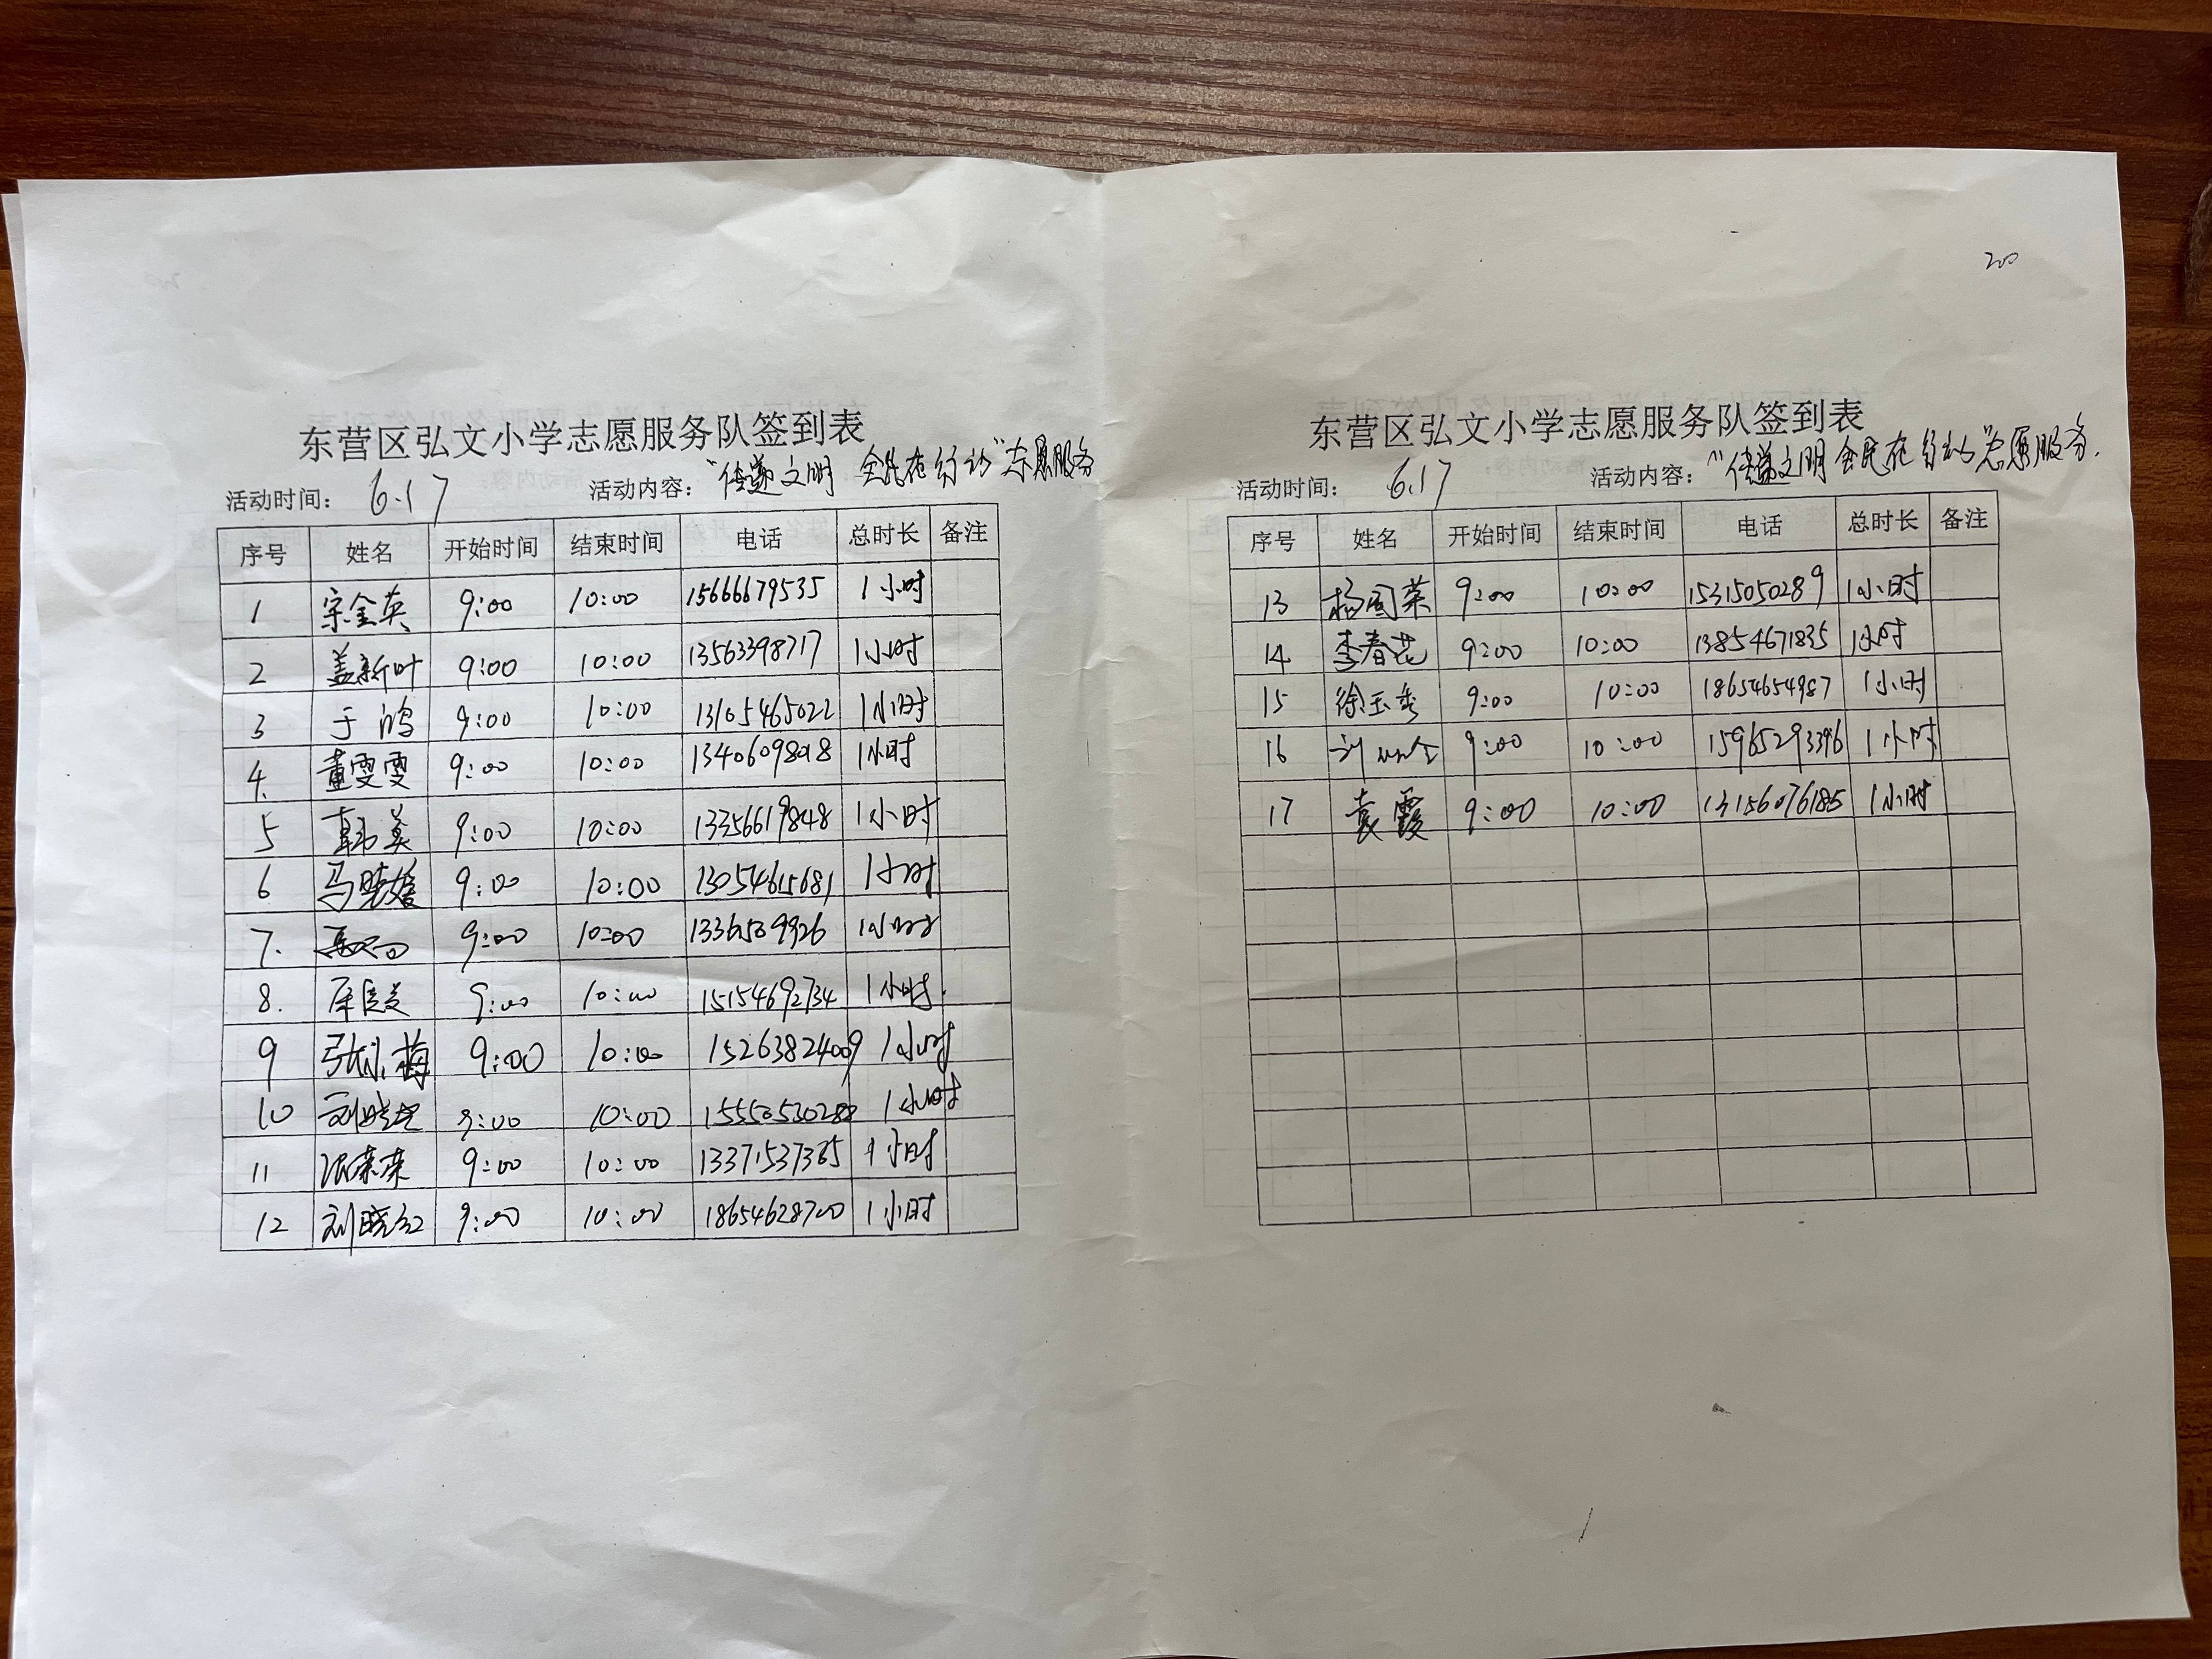 东营区弘文小学志愿服务队签到表
活动时间： 6.17 活动内容：“传递文明 全民在行动”志愿服务
序号 姓名 开始时间 结束时间 电话 总时长 备注
1 宗金英 9:00 10:00 15666679535 1小时
2 盖新叶 9:00 10:00 13563398717 1小时
3 于鸿 9:00 10:00 13105465022 1小时
4. 董雯雯 9:00 10:00 13406098018 1小时
5 韩美 9:00 10:00 13356619848 1小时
6 马晓媛 9:00 10:00 13054615681 1小时
7. 9:00 10:00 13361509926 1小时
8. 9:00 10:00 15154692734 1小时.
9 张小梅 9:00 10:00 15263824009 1小时
10 9:00 10:00 1小时
11 张荣荣 9:00 10:00 13371537365 1小时
12 刘晓红 9:00 10:00 18654628700 1小时
200
东营区弘文小学志愿服务队签到表
活动时间： 6.17 活动内容：“传递文明 全民在行动”志愿服务.
序号 姓名 开始时间 结束时间 电话 总时长 备注
13 杨国荣 9:00 10:00 15315050289 1小时
14. 李春花 9:00 10:00 13854671835 1小时
15 徐玉秀 9:00 10:00 18654654987 1小时
16 9:00 10:00 15965293396 1小时
17 袁霞 9:00 10:00 13156076185 1小时